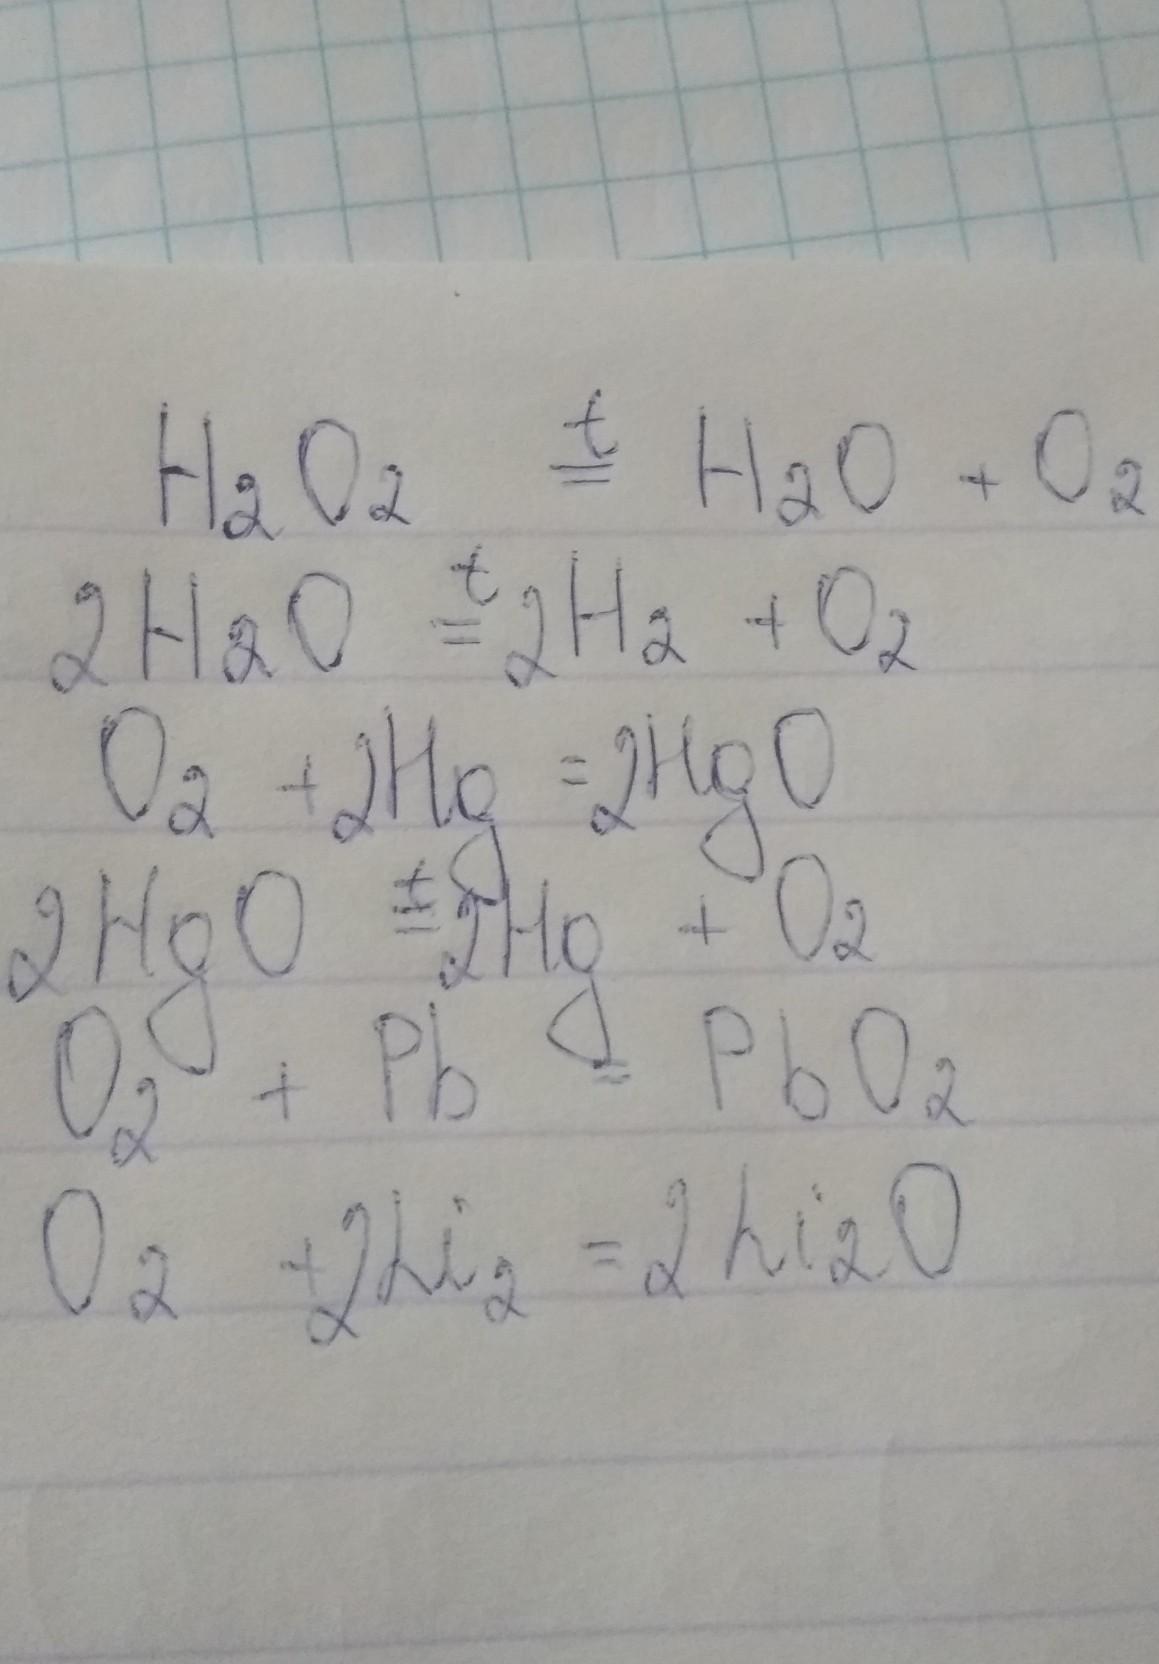 H₂O₂ =ᵗ H₂O + O₂
2H₂O =ᵗ 2H₂ + O₂
O₂ + 2Hg = 2HgO
2HgO =ᵗ 2Hg + O₂
O₂ + Pb = PbO₂
O₂ + 2Li₂ = 2Li₂O